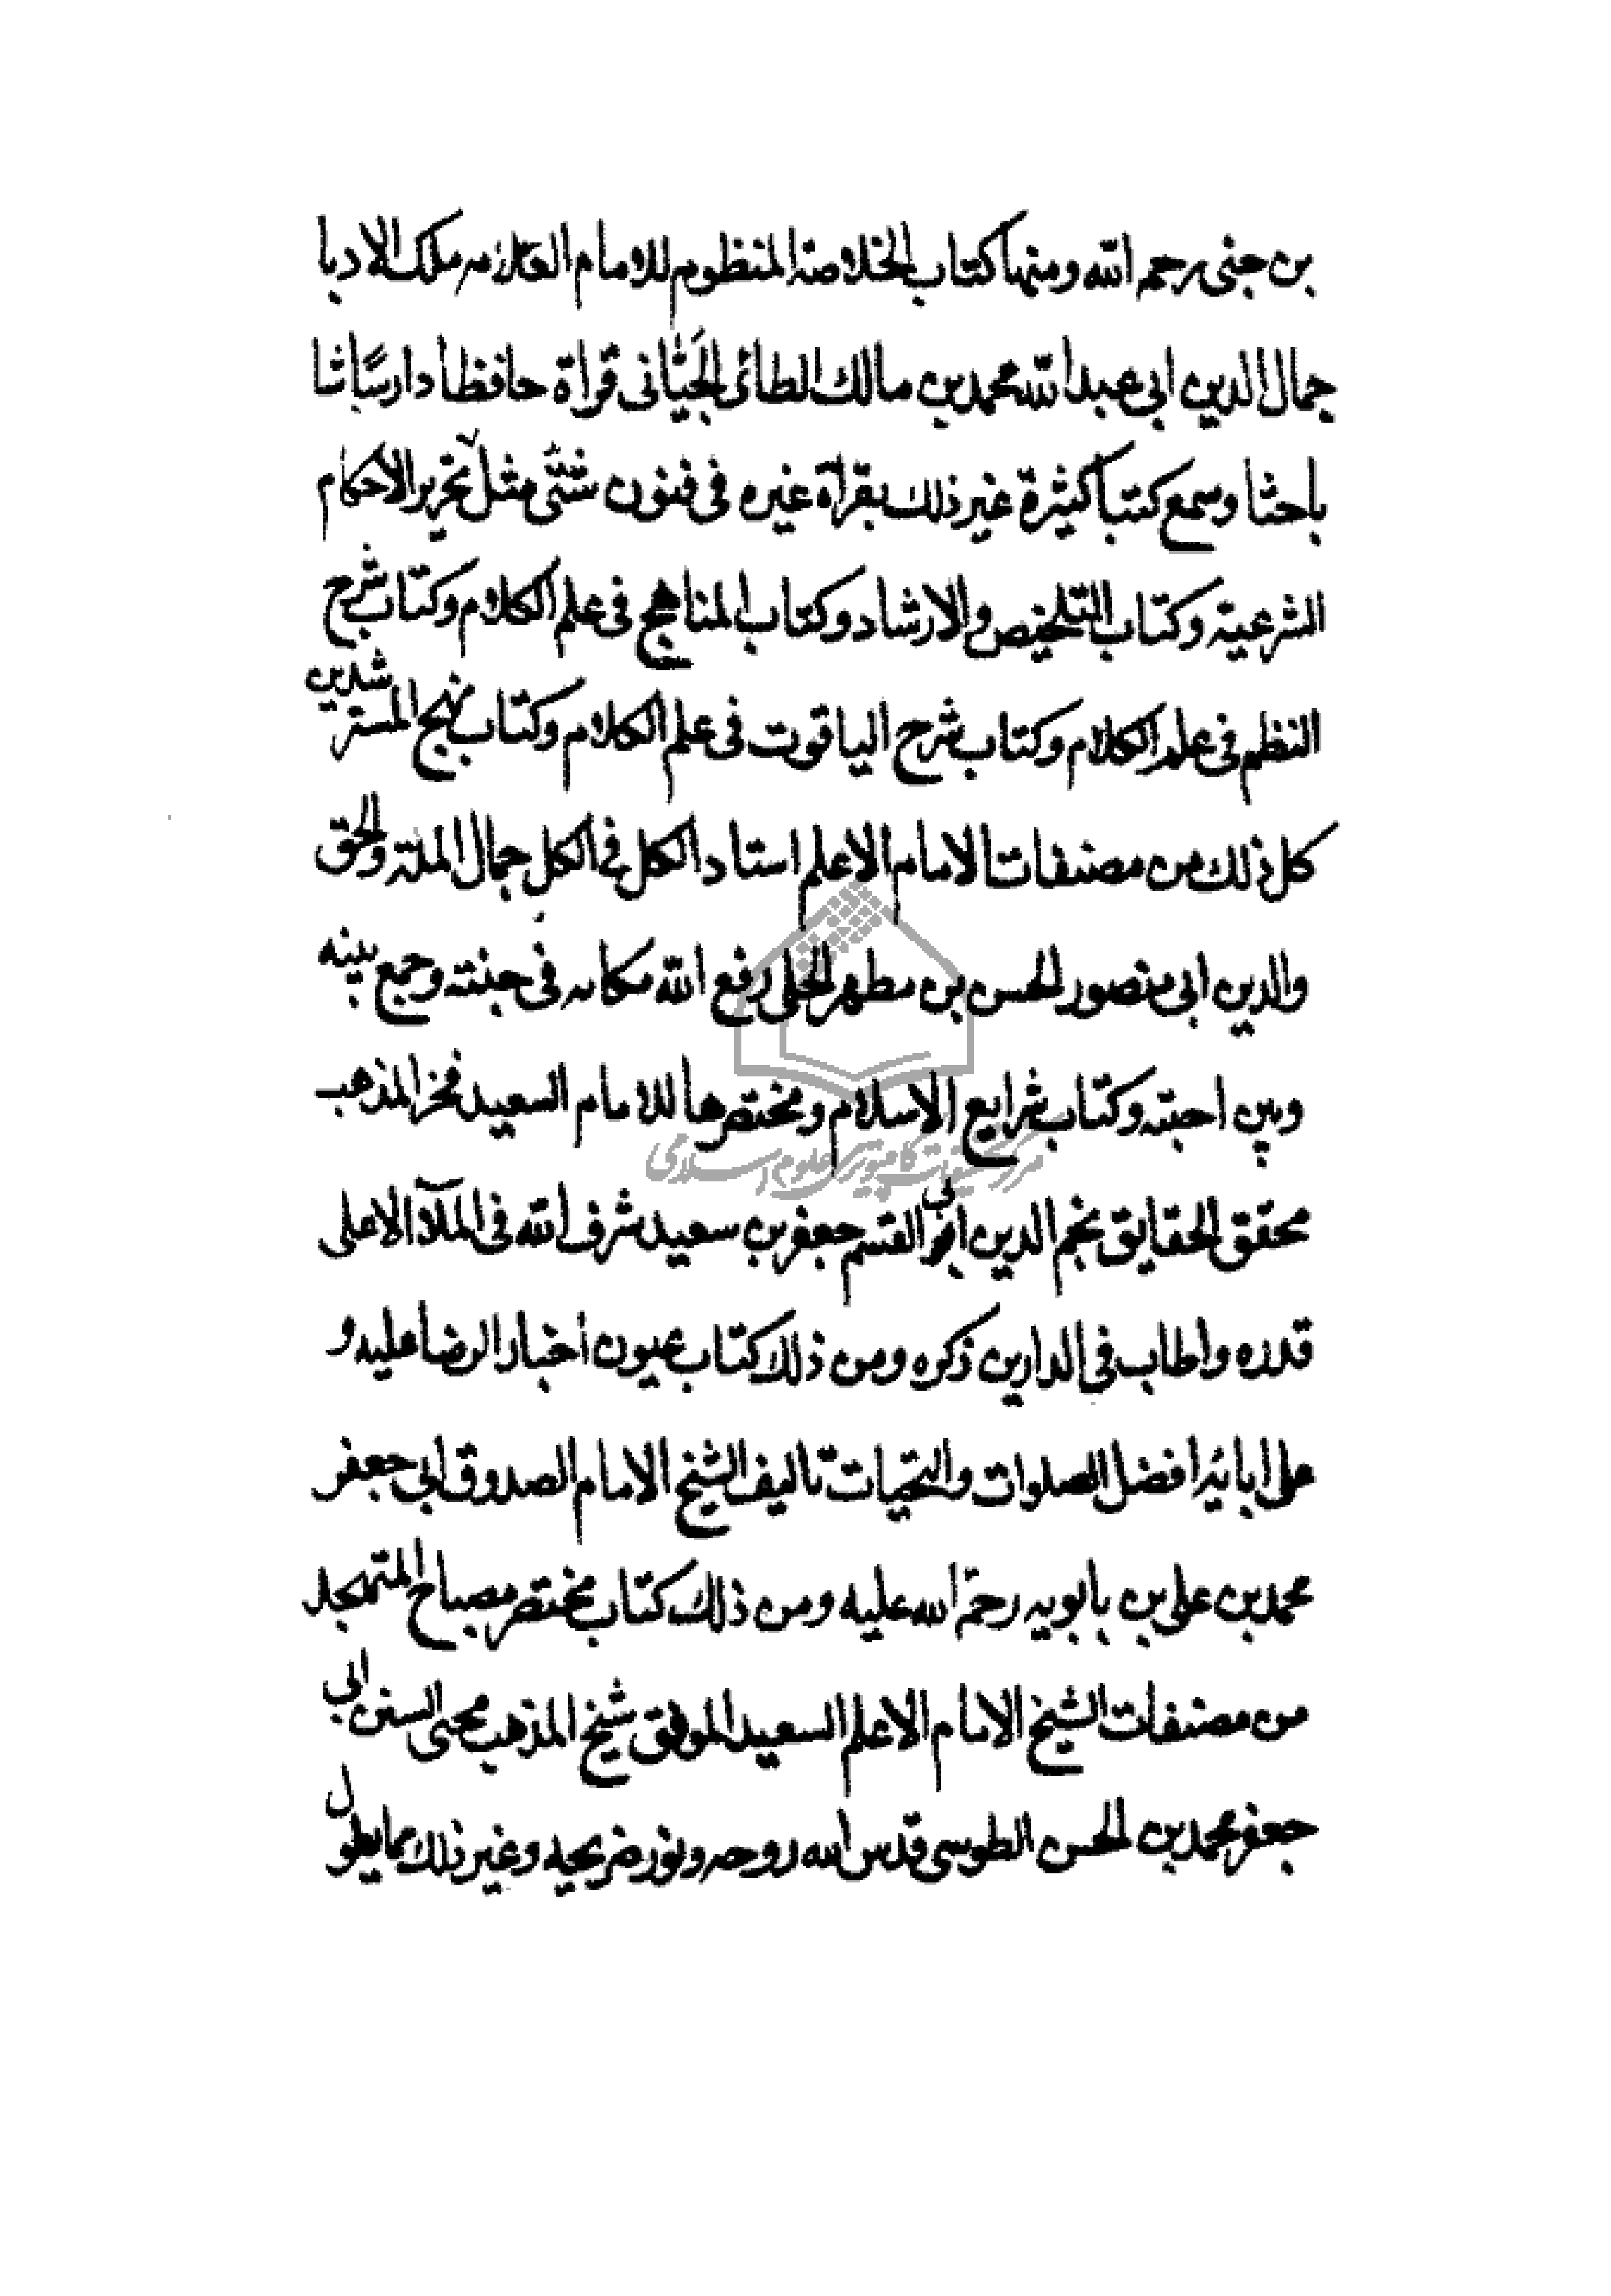 بن جنى رحمه الله ومنها كتاب الخلاصة المنظوم للامام العلامه ملك الادبا
جمال الدين ابى عبد الله محمد بن مالك الطائى الجَيّانى قراة حافظا دارسًا
باحثا وسمع كتبا كثيرة غير ذلك بقرآة غيره فى فنون شتّى مثل تحرير الاحكام
الشرعية وكتاب التلخيص والارشاد وكتاب المناهج فى علم الكلام وكتاب شرح
النظم فى علم الكلام وكتاب شرح الياقوت فى علم الكلام وكتاب نهج المسترشدين
كل ذلك من مصنفات الامام الاعلم استاد الكل فى الكل جمال الملة والحق
والدين ابى منصور الحسن بن مطهر الحلى رفع الله مكانه فى جنته وجمع بينه
وبين احبته وكتاب شرايع الاسلام ومختصرها للامام السعيد فخر المذهب
محقق الحقايق نجم الدين ابى القسم جعفر بن سعيد شرف الله فى الملآ الاعلى
قدره واطاب فى الدارين ذكره ومن ذلك كتاب عيون أخبار الرضا عليه و
على ابائه افضل الصلوات والتحيات تاليف الشيخ الامام الصدوق ابى جعفر
محمد بن على بن بابويه رحمة الله عليه ومن ذلك كتاب مختصر مصباح المتهجد
من مصنفات الشيخ الامام الاعلم السعيد الموفق شيخ المذهب محيى السنن ابى
جعفر محمد بن الحسن الطوسى قدس الله روحه ونور ضريحه وغير ذلك مما يطول
مركز تحقيقات كامپيوترى علوم اسلامى